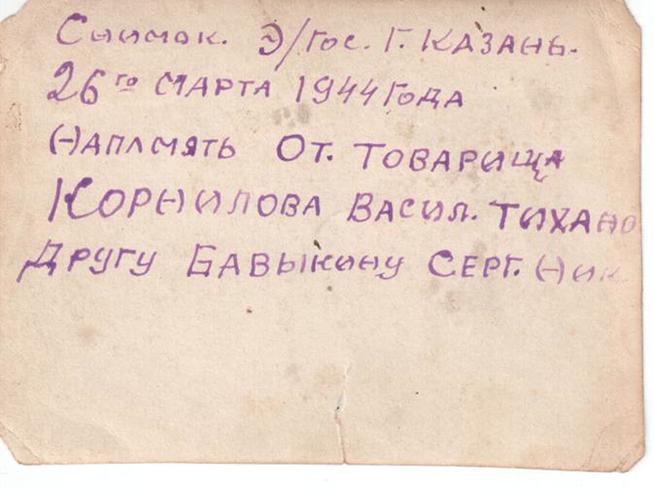 Снимок. Э/гос. г. Казань.
26го марта 1944 года
Напамять От. товарища
Корнилова Васил. Тихано
Другу Бавыкину Серг. Ник